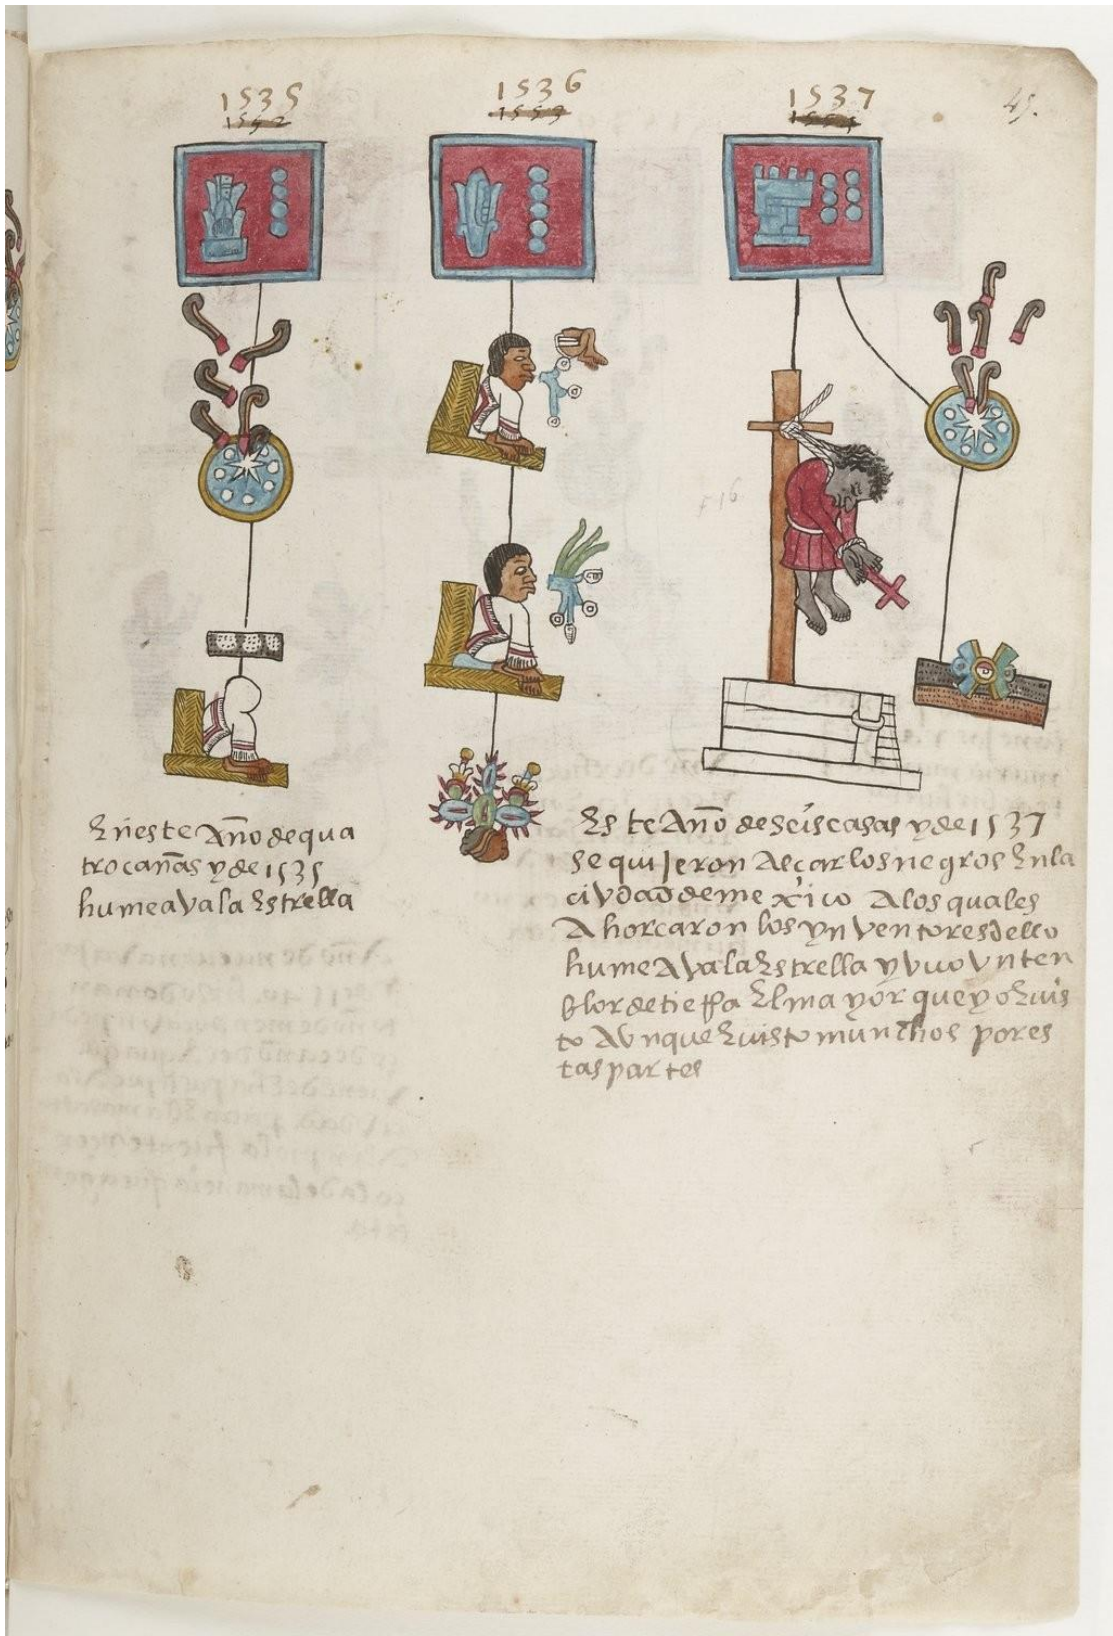 1535
1536
1537
45.
Eneste Año de qua
tro cañas y de 1535
humeava la estrella
Este Año de seis casas y de 1537
se quisieron Alçar los negros en la
civdad de mexico A los quales
Ahorcaron los ynventores dello
humeava la estrella y vuo vn ten
blor de tierra El mayor que yo e uis
to Avnque e uisto munchos por es
tas partes